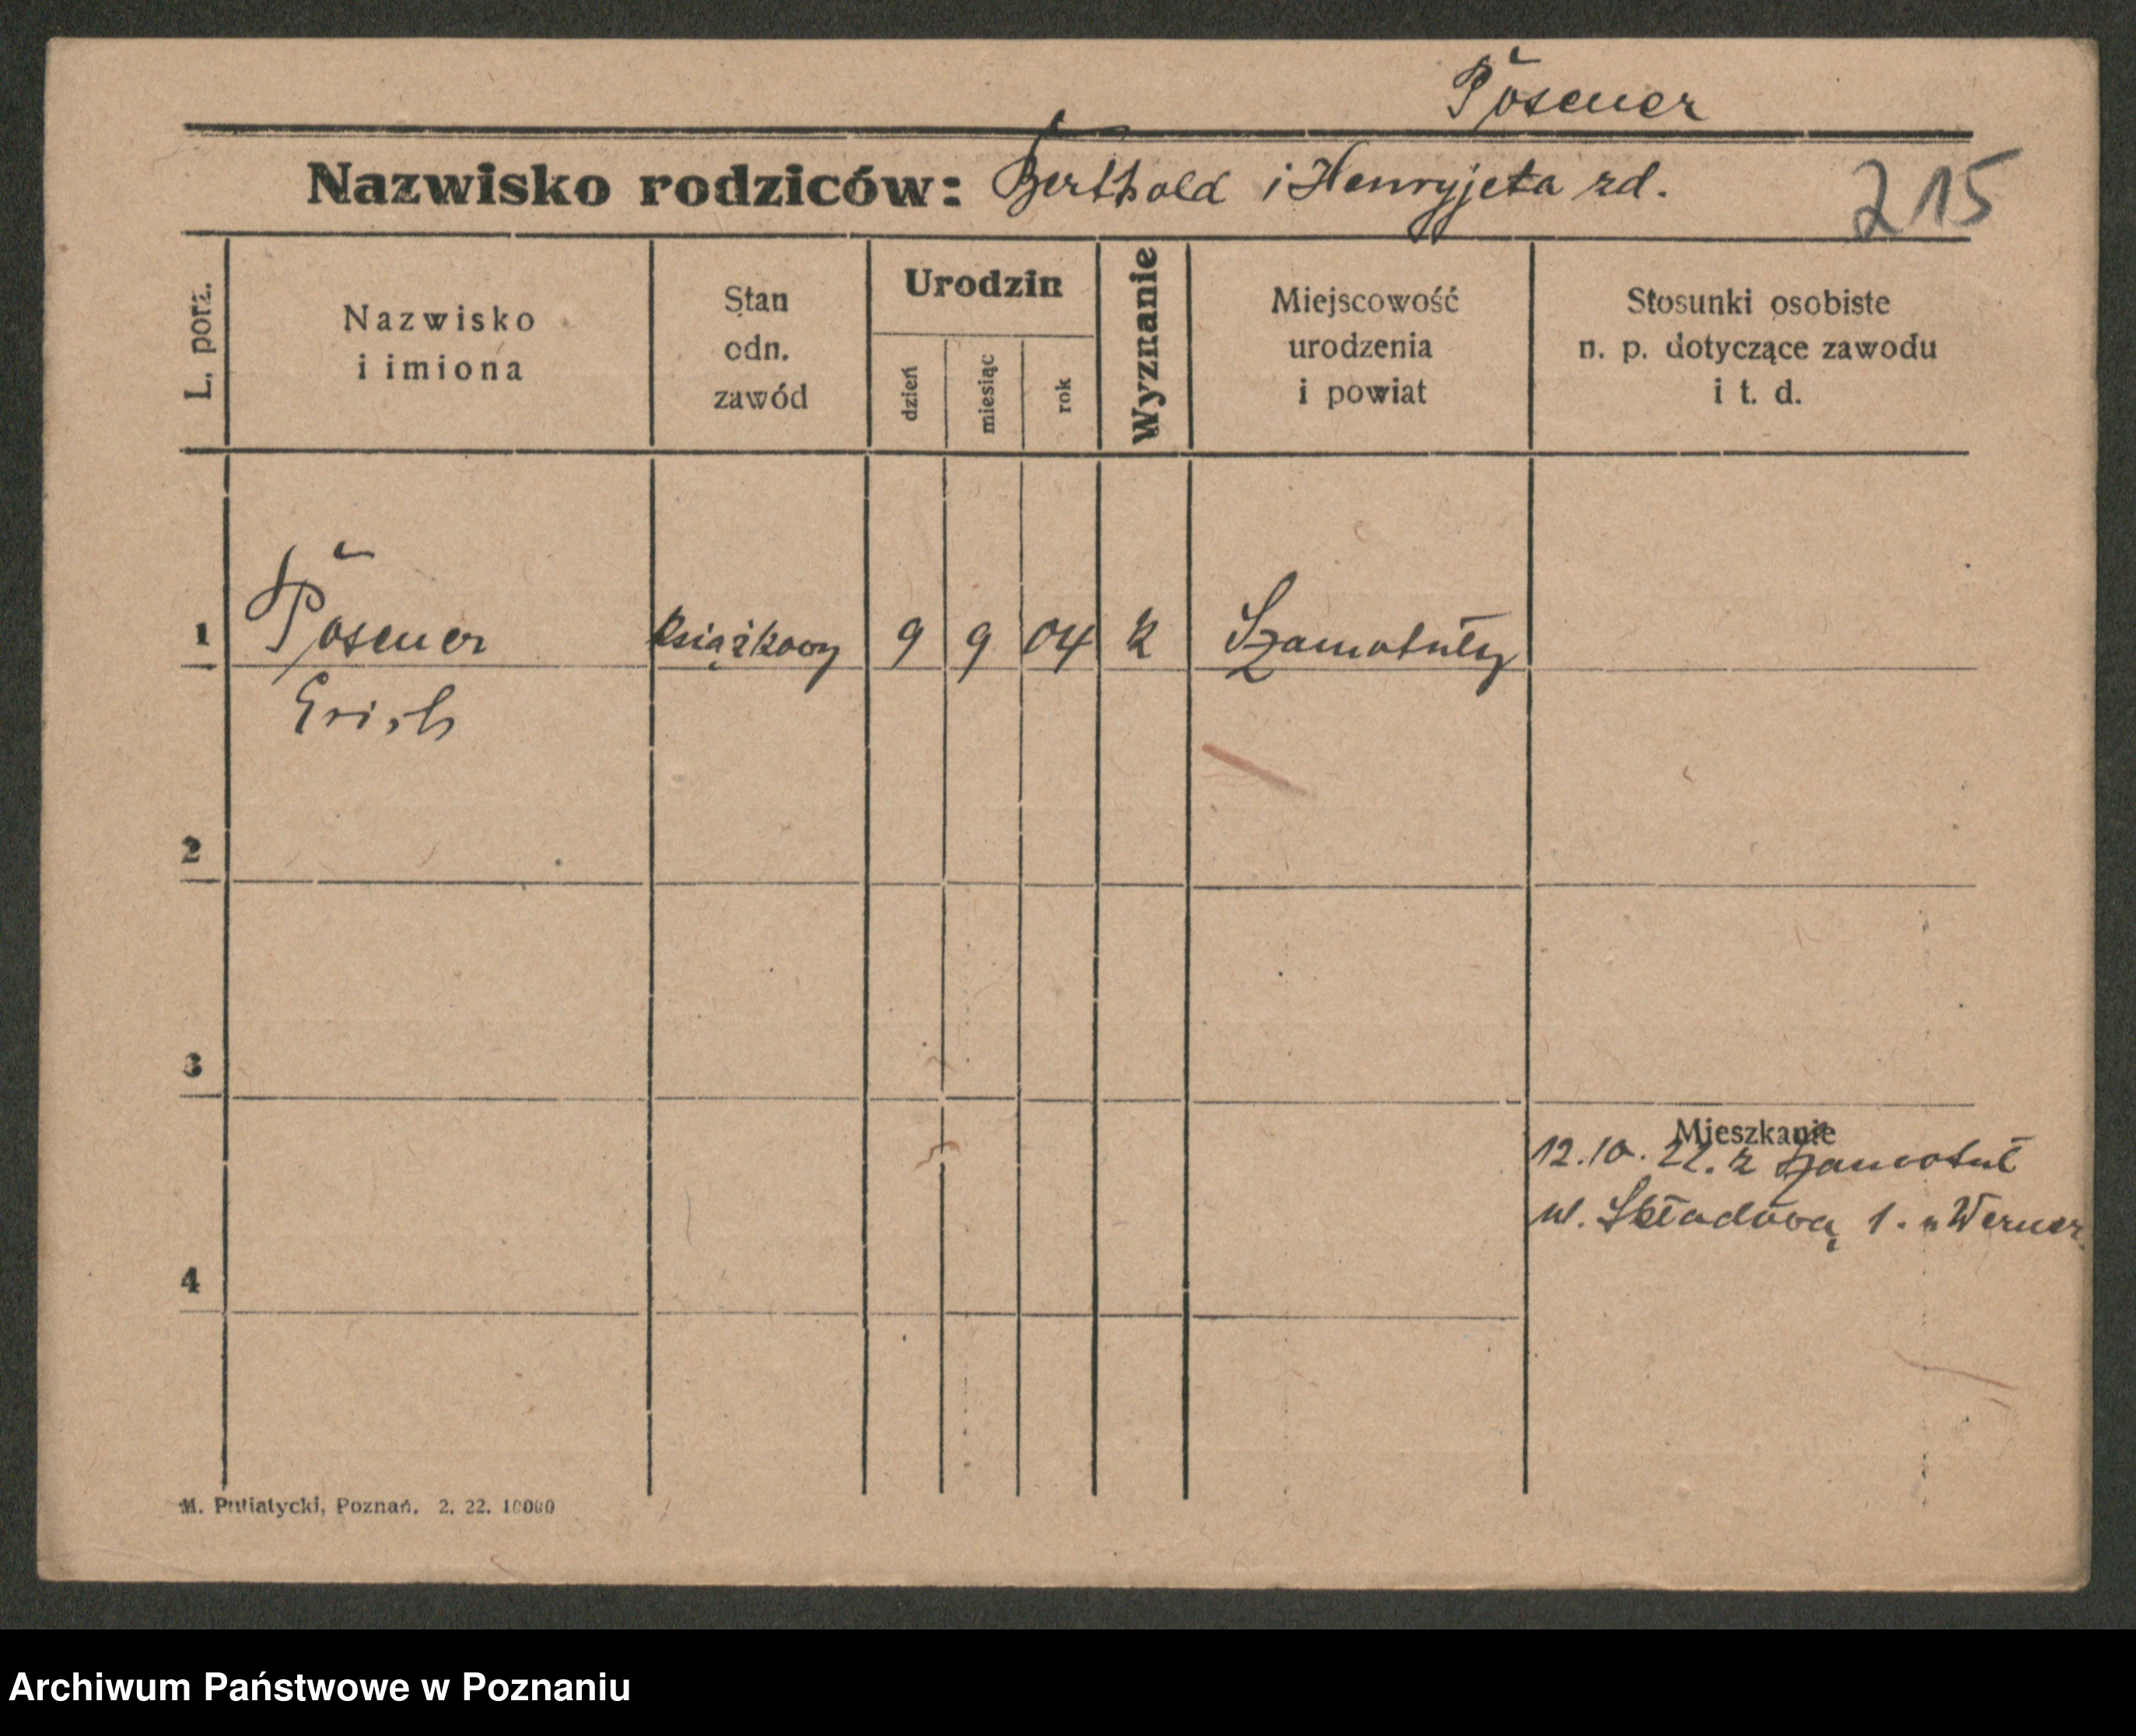 Pösener
Nazwisko rodziców: Berthold i Henryjeta rd.
215
L. porz.
Nazwisko
i imiona
Stan
odn.
zawód
Urodzin
dzień
miesiąc
rok
Wyznanie
Miejscowość
urodzenia
i powiat
Stosunki osobiste
n. p. dotyczące zawodu
i t. d.
1 Pösener książkowy 9 9 04 k Szamotuły
Erich
2
3
Mieszkanie
12.10. 22. z Szamotuł
ul. Składową 1. u Werner.
4
M. Putiatycki, Poznań. 2. 22. 10000
Archiwum Państwowe w Poznaniu